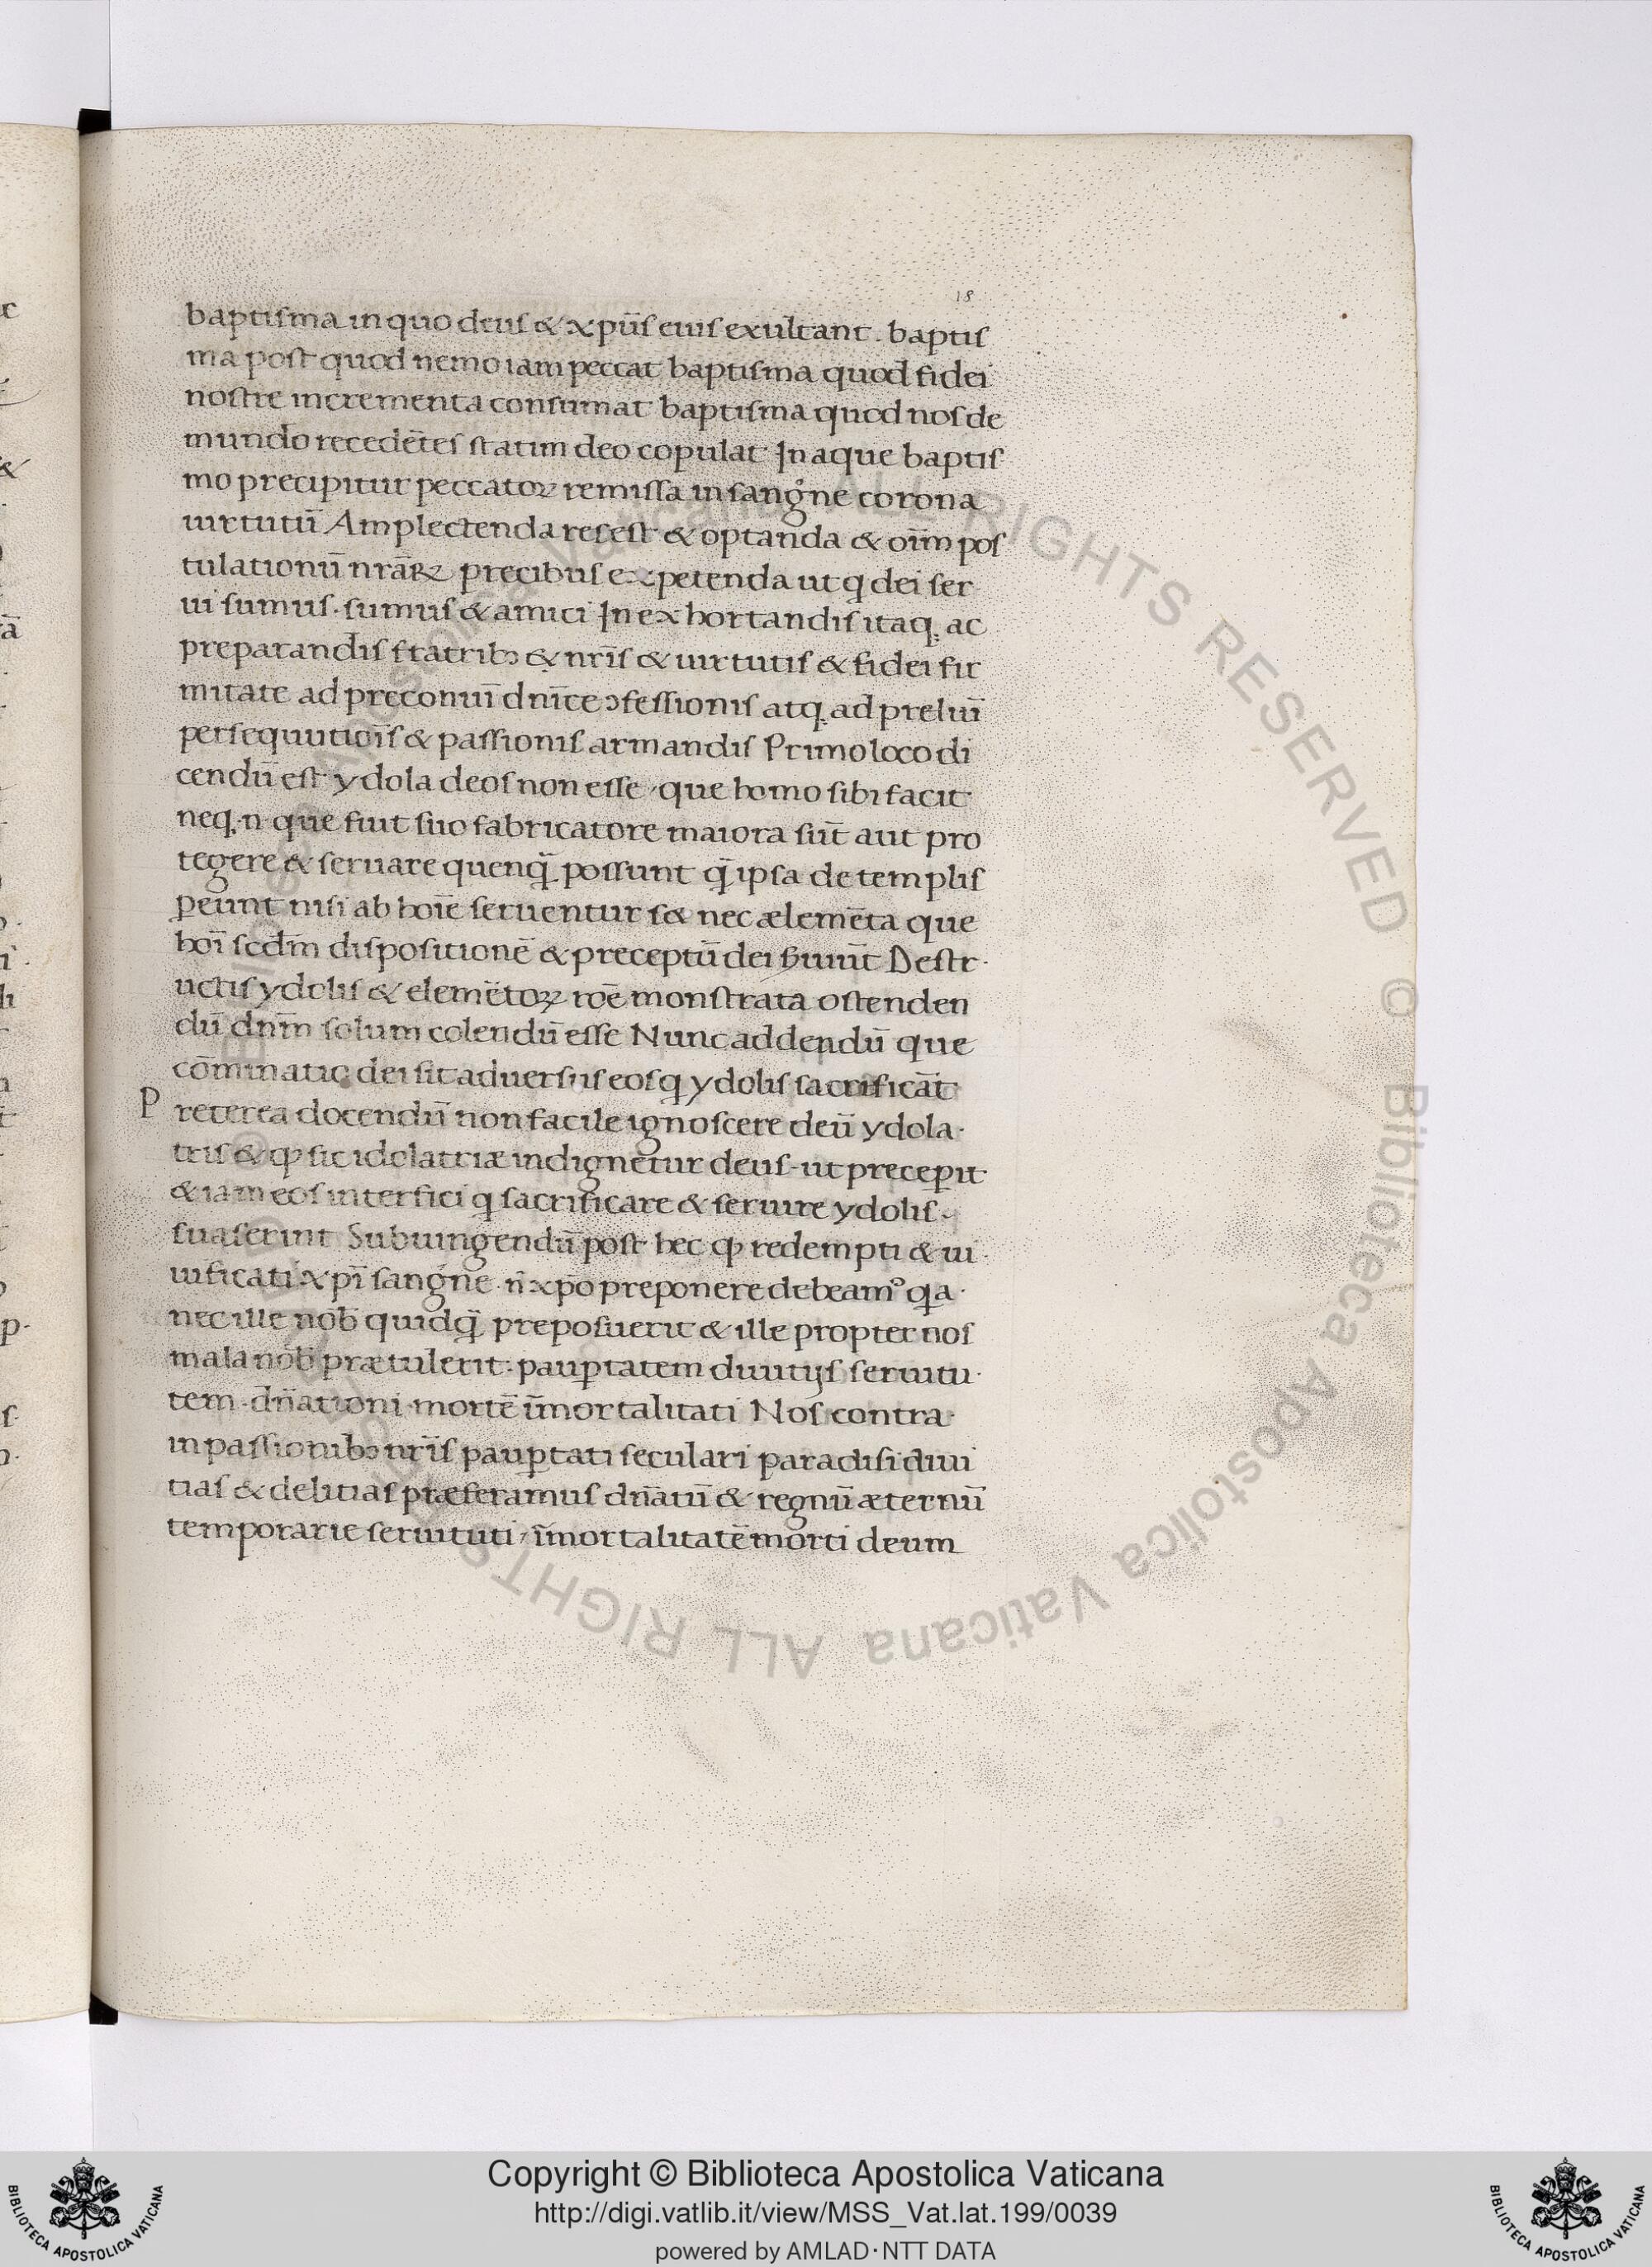 18
baptisma in quo deus & xpūs eius exultant. baptis
ma post quod nemo iam peccat baptisma quod fidei
nostre incrementa consumat baptisma quod nos de
mundo recedētes statim deo copulat In aque baptis
mo precipitur peccatoꝝ remissa in sangⁱne corona
uirtutū Amplectenda res est & optanda & oīm pos
tulationū nrāꝝ precibus expetenda ut q̇ dei ser
ui sumus. sumus & amici In exhortandis itaq; ac
preparandis fratribꝫ & nrīs & uirtutis & fidei fir
mitate ad preconuī dnīce ꝯfessionis atq; ad preluī
persequutiōīs & passionis armandis Primo loco di
cendū est ydola deos non esse, que homo sibi facit
neq; n. que fiūt suo fabricatore maiora sūt aut pro
tegere & seruare quenq̄ possunt q̄ ipsa de templis
ꝑeunt nisi ab hoīe seruentur s& nec ælemēta que
hoī scdm̄ dispositionē & preceptū dei ẜuiūt Destr.
uctis ydolis & elemētoꝝ rōe monstrata ostenden
dū dnm̄ solum colendū esse Nunc addendū que
cōminatio dei sit aduersus eos q̇ ydolis sacrificāt
P reterea docendū non facile ignoscere deū ydola.
tris & ꝙ sic idolatriæ indignetur deus. ut preceꝑit
& iam eos interfici q̇ sacrificare & seruire ydolis.
suaserint Subiungendū post hec ꝙ redempti & ui.
uificati xpī sangⁱne. n̄ xpō preponere debeamꝰ qa.
nec ille nob̄ quidq̄ preposuerit & ille propter nos
mala nob̄ prætulerit. pauꝑtatem diuitijs seruitu.
tem. dn̄ationi. mortē īmortalitati Nos contra.
in passionibꝫ nrīs pauꝑtati seculari paradisi diui
tias & delitias præferamus dn̄atū & regnū æternū
temporarie seruituti, īmortalitatē morti deum
Copyright © Biblioteca Apostolica Vaticana
http://digi.vatlib.it/view/MSS_Vat.lat.199/0039
powered by AMLAD·NTT DATA